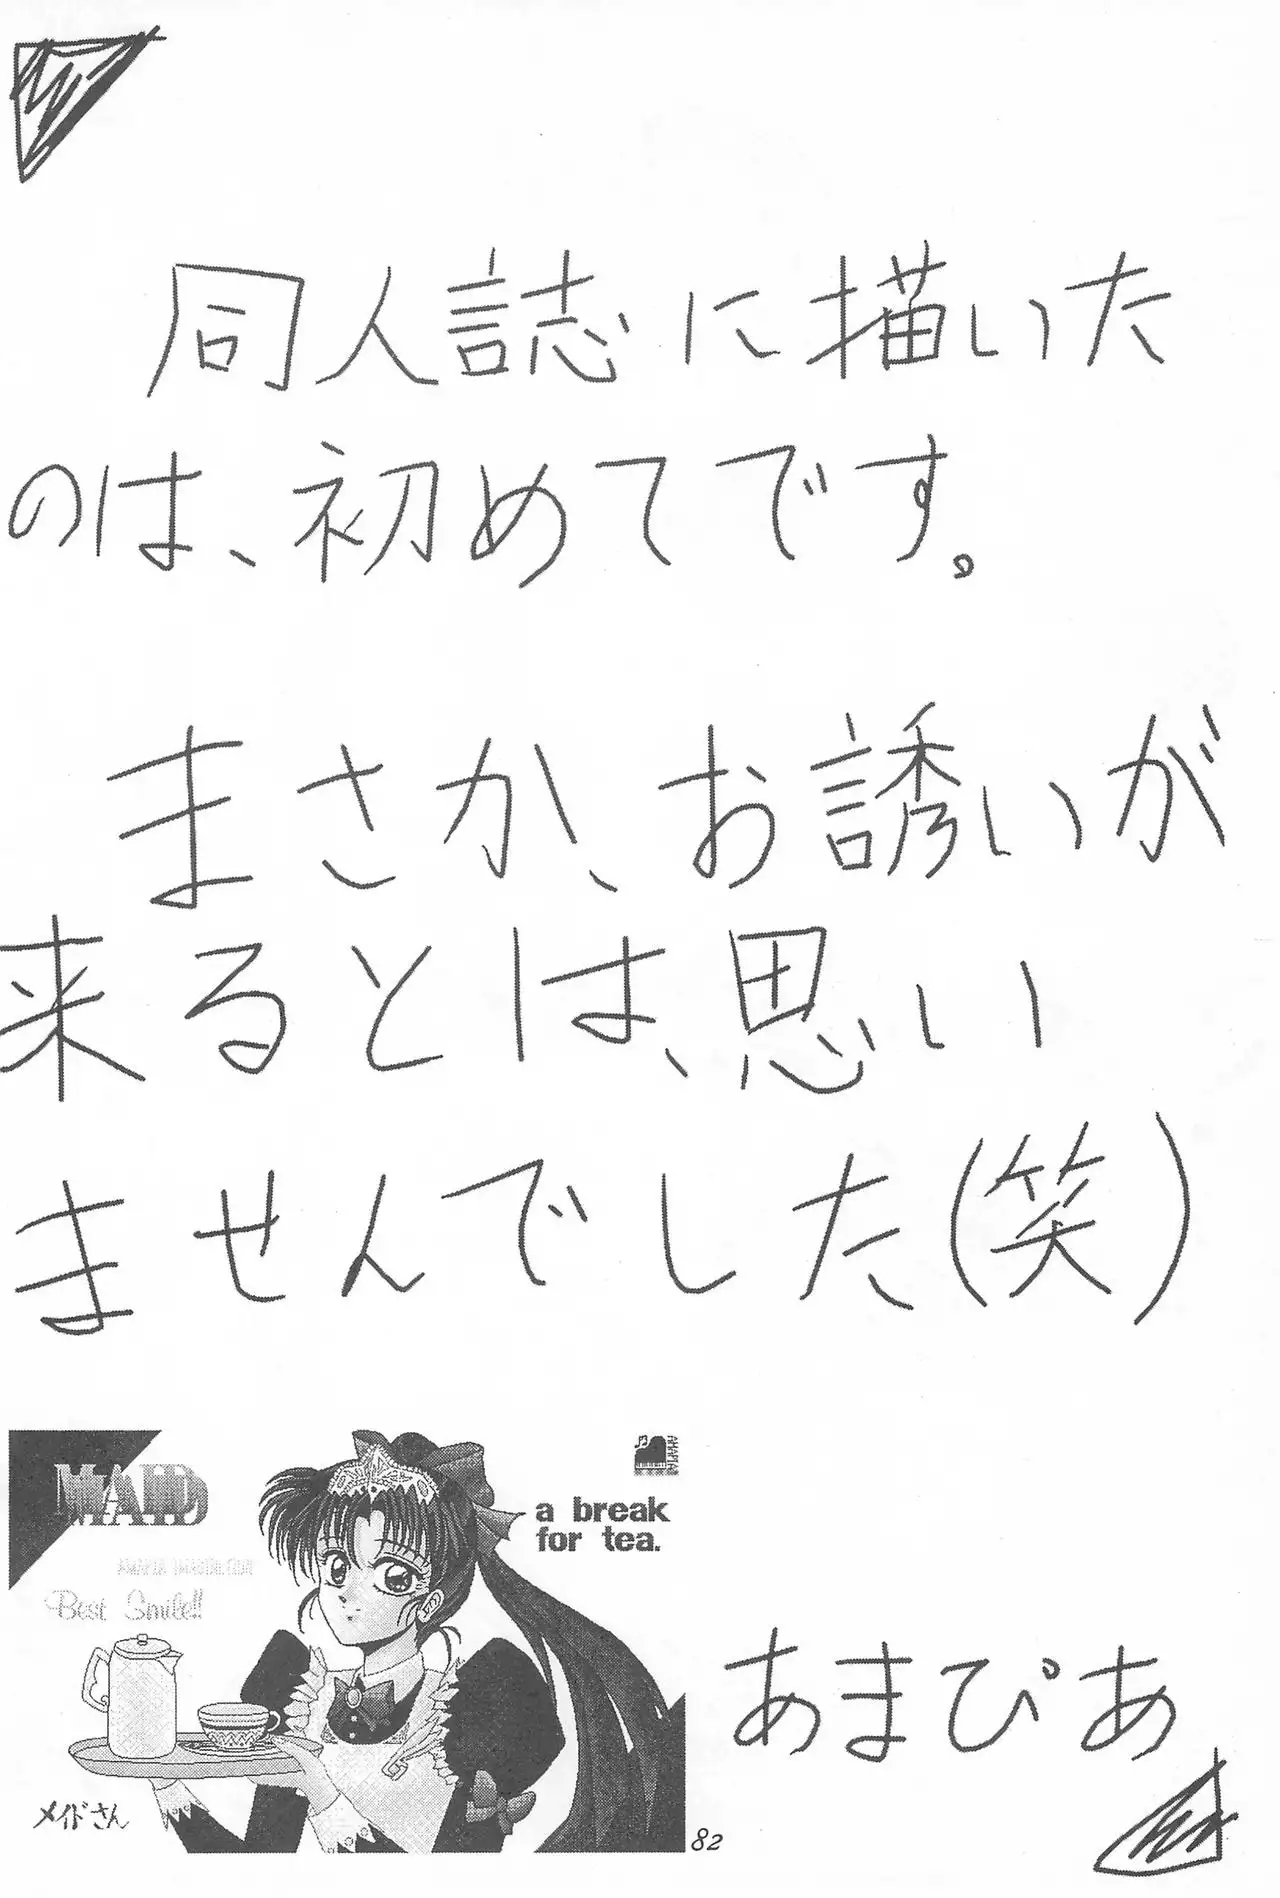 同人誌に描いた
のは、初めてです。
まさか、お誘いが
来るとは、思い
ませんでした(笑)
MAID
Best Smile!!
a break
for tea.
メイドさん
あまぴあ
82